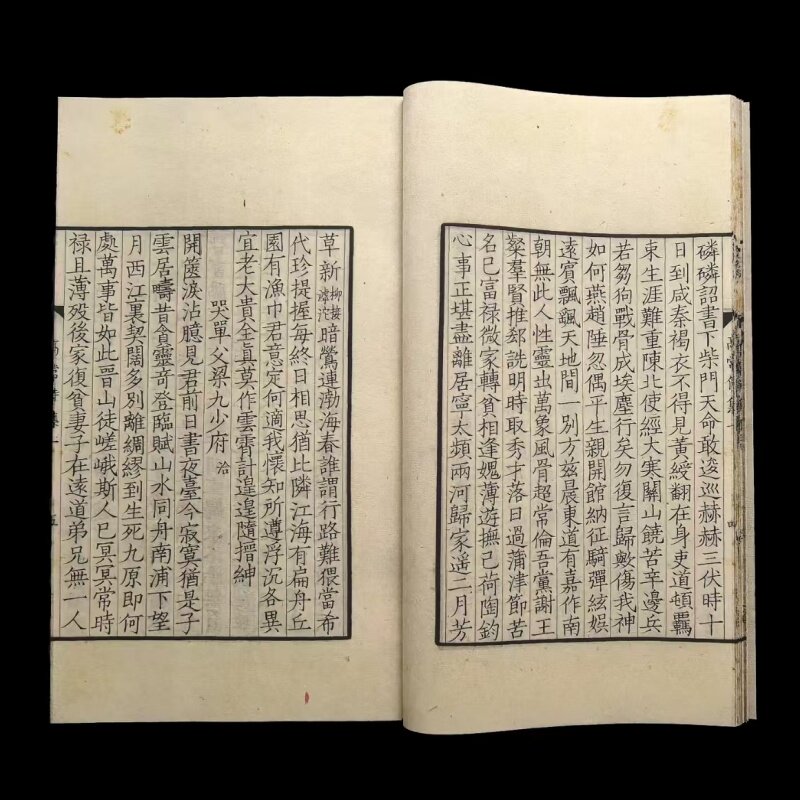 磷磷詔書下柴門天命敢逡巡赫赫三伏時十
日到咸秦褐衣不得見黃綬翻在身吏道頓羈
束生涯難重陳北使經大寒關山饒苦辛邊兵
若芻狗戰骨成埃塵行矣勿復言歸歟傷我神
如何燕趙陲忽偶平生親開館納征騎彈絃娛
遠賓飄颻天地間一別方茲晨東道有嘉作南
朝無此人性靈出萬象風骨超常倫吾黨謝王
粲羣賢推郄詵明時取秀才落日過蒲津節苦
名已富祿微家轉貧相逢媿薄遊撫己荷陶鈞
心事正堪盡離居寧太頻兩河歸家遥二月芳
草新柳接滹沱暗鶯連渤海春誰謂行路難猥當希
代珍提握每終日相思猶比隣江海有扁舟丘
園有漁巾君意定何適我懷知所遵浮沉各異
宜老大貴全真莫作雲霄計遑遑隨搢紳
哭單父梁九少府 洽
開篋淚沾臆見君前日書夜臺今寂寞猶是子
雲居疇昔貪靈奇登臨賦山水同舟南浦下望
月西江裏契闊多別離綢繆到生死九原即何
處萬事皆如此晉山徒嵯峨斯人已冥冥常時
祿且薄歿後家復貧妻子在遠道弟兄無一人